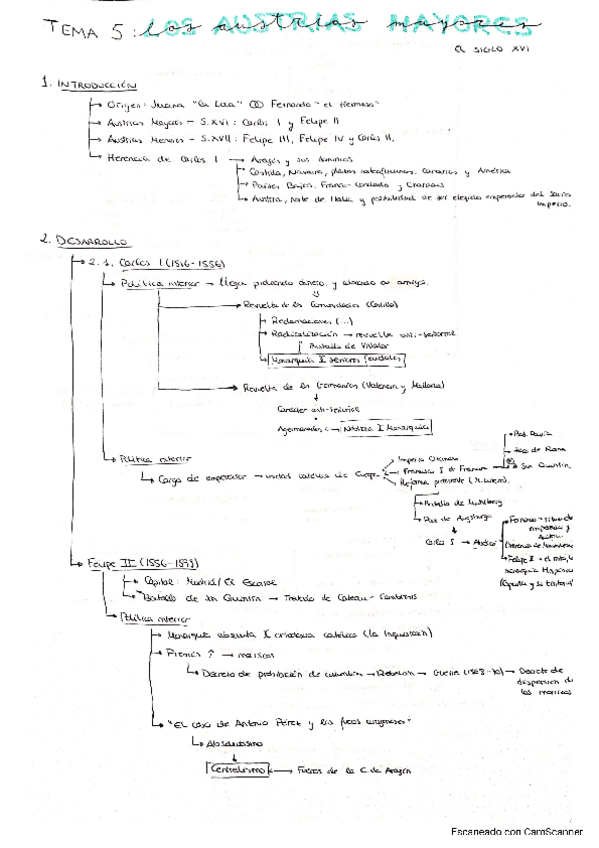 TEMA 5: LOS AUSTRIAS MAYORES
El SIGLO XVI
1. INTRODUCCIÓN
Origen: Juana "la Loca" Fernando "el Hermoso"
Austrias Mayores - S.XVI: Carlos I y Felipe II
Austrias Menores - S.XVII: Felipe III, Felipe IV y Carlos II.
Herencia de Carlos I → Aragón y sus dominios
Castilla, Navarra, plazas norteafricanas, Canarias y América
Países Bajos, Franco-condado y Charolais
Austria, norte de Italia y posibilidad de ser elegido emperador del Sacro
Imperio.
2. DESARROLLO
2.1. Carlos I (1516-1556)
Política interior → llega pidiendo dinero y a sus amigos.
Revuelta de las Comunidades (Castilla)
Reclamaciones (...)
Radicalización → revuelta anti-señorial
Batalla de Villalar
Monarquía I señores feudales
Revuelta de las Germanías (Valencia y Mallorca)
Carácter anti-señorial
Agermanados → Nobleza I Monarquía
Política interior
Cargo de emperador → unidad católica de Europa
Imperio Otomano
Francisco I de Francia
Reforma protestante (M. Lutero).
Bat. Pavía
Saco de Roma
San Quintín
Batalla de Mühlberg
Paz de Augsburgo
Carlos I → Abdica
Felipe II (1556-1598)
Capital: Madrid / El Escorial
Batalla de San Quintín → Tratado de Cateau-Cambrésis
Política interior
Monarquía absoluta I católica (la Inquisición)
→ moriscos
Decreto de prohibición de costumbres → Rebelión → Guerra (1568-70) → Decreto de
dispersión de
los moriscos
"El caso de Antonio Pérez y los fueros aragoneses"
Absolutismo
Centralismo → Fueros de la C. de Aragón
Escaneado con CamScanner